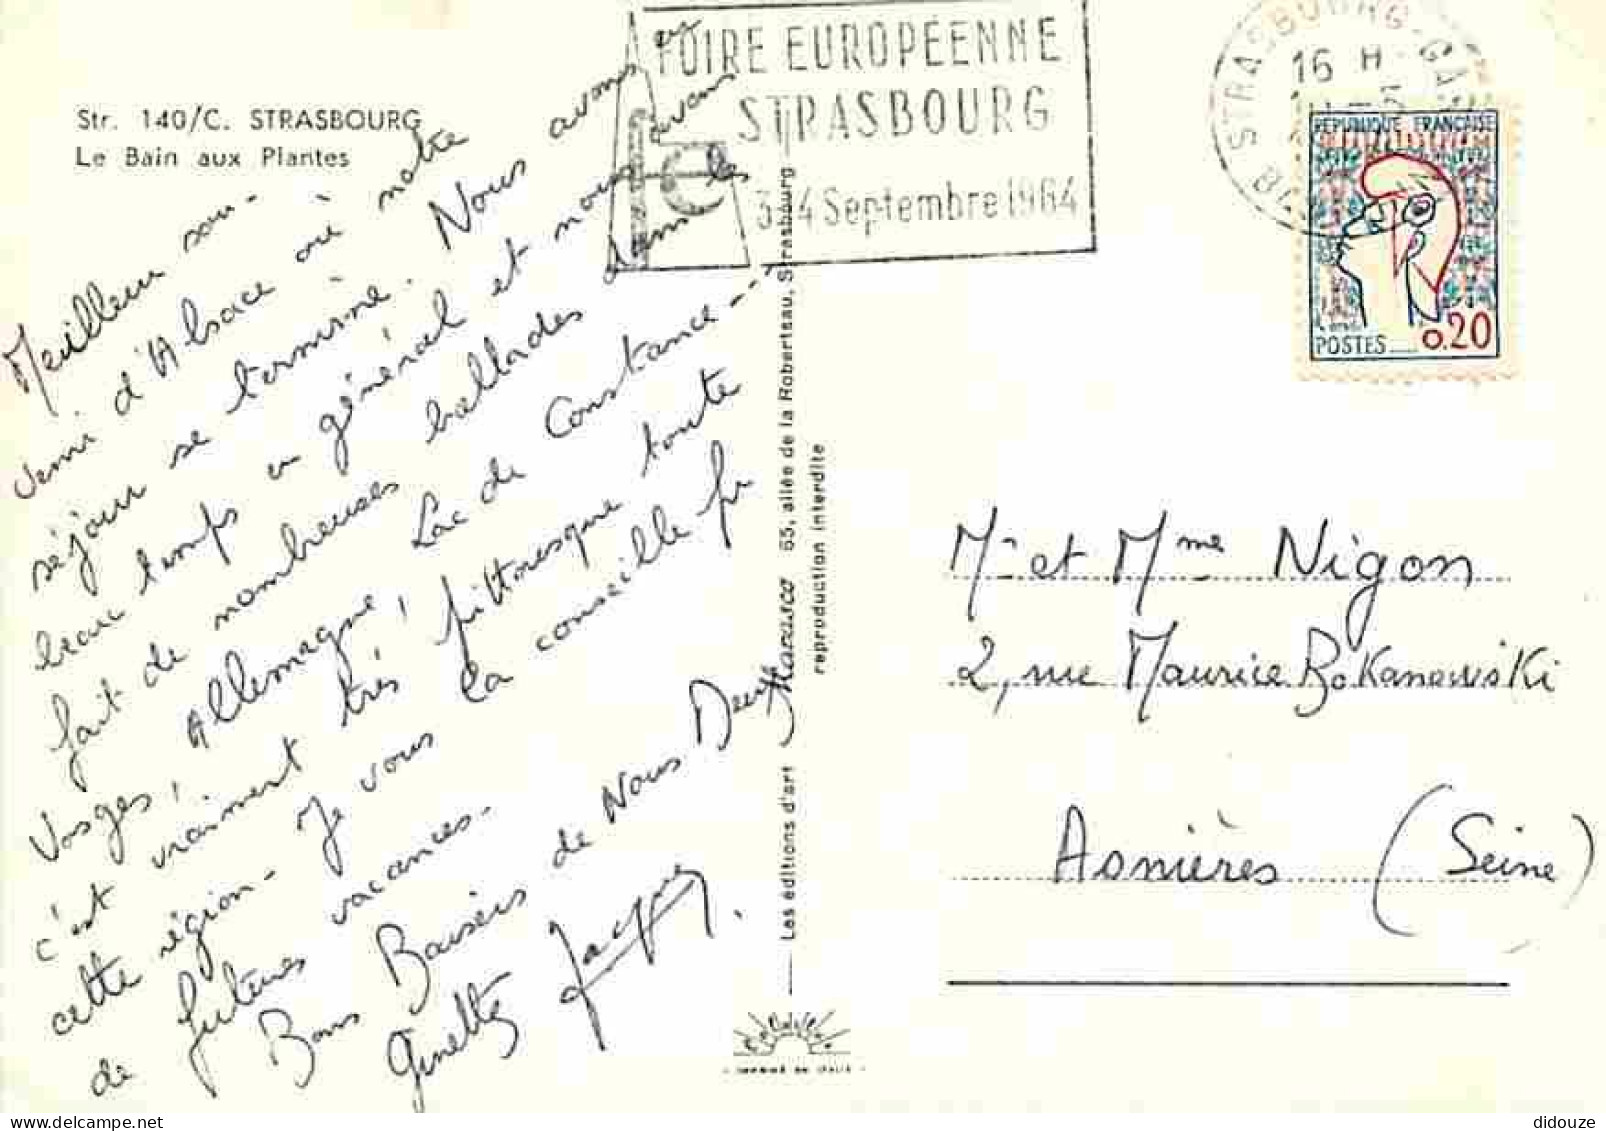 Str. 140/C. STRASBOURG
Le Bain aux Plantes
Meilleur sou-
venir d'Alsace où notre
séjour se termine. Nous avons eu
beau temps en général et nous avons
fait de nombreuses ballades dans les
Vosges, Allemagne, Lac de Constance --
c'est vraiment très pittoresque toute
cette région - Je vous la conseille pr
de futures vacances.
Bons Baisers de Nous Deux
Ginette Jacques
FOIRE EUROPÉENNE
STRASBOURG
3-14 Septembre 1964
STRASBOURG-GA
16 H
RÉPUBLIQUE FRANÇAISE
POSTES 0.20
Les éditions d'art 65, allée de la Robertsau, Strasbourg
reproduction interdite
IMPRIMÉ EN ITALIE
Mr et Mme Nigon
2, rue Maurice Bokanowski
Asnières (Seine)
didouze